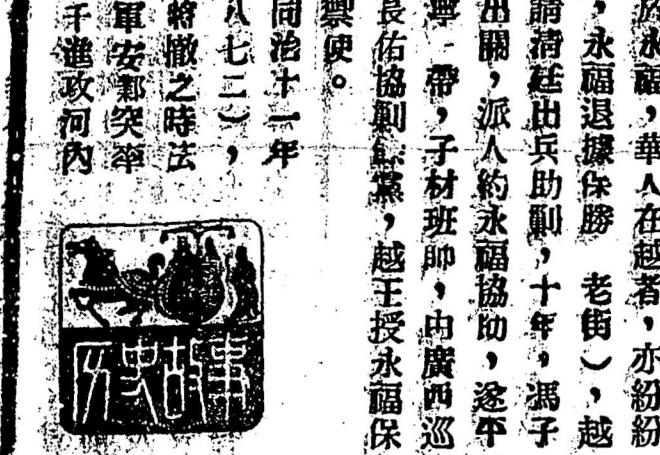 於永福，華人在越者，亦紛紛
，永福退據保勝　老街），越
請清廷出兵助剿，十年，馮子
出關，派人約永福協助，遂平
寧一帶，子材班帥，由廣西巡
長佑協剿 黨，越王授永福保
禦使。
同治十一年
八七二），
將撤之時法
軍安鄴突率
千進攻河內
歷史故事